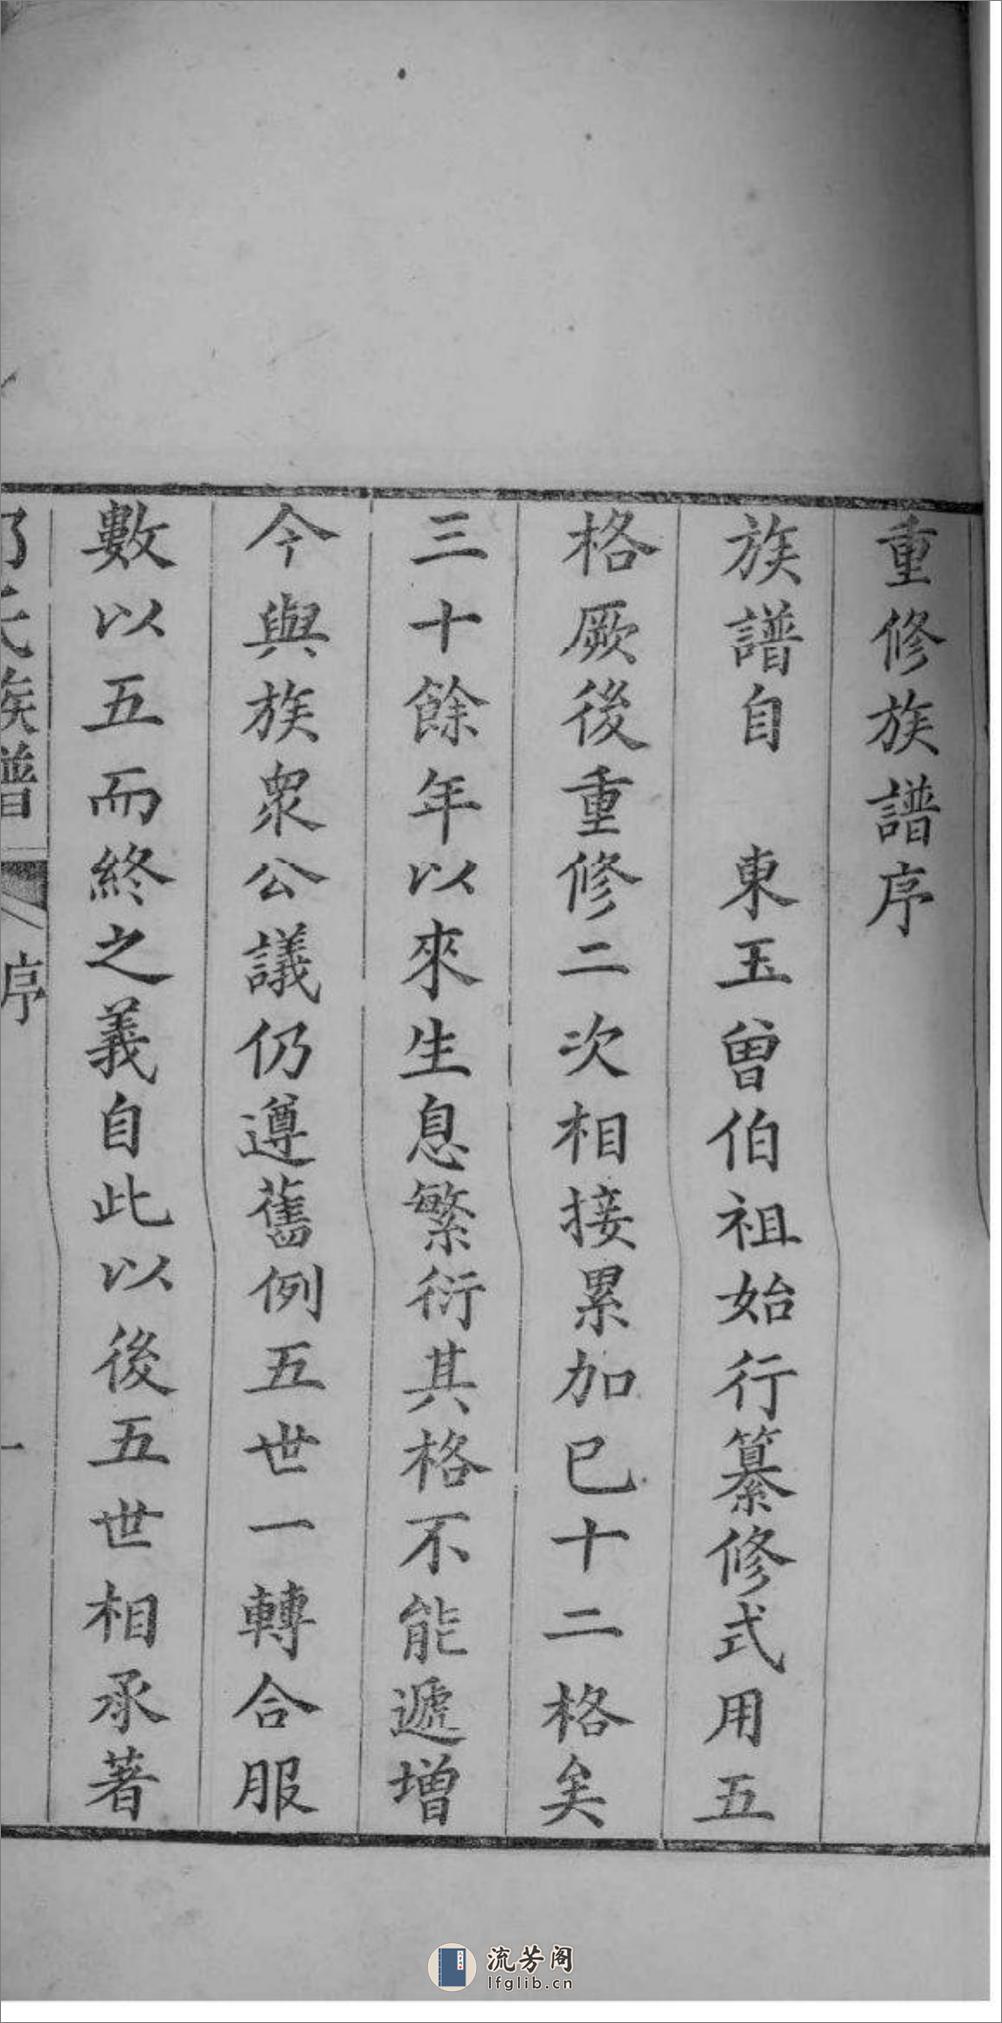 重修族譜序
族譜自　東玉曾伯祖始行纂修式用五
格厥後重修二次相接累加已十二格矣
三十餘年以來生息繁衍其格不能遞增
今與族眾公議仍遵舊例五世一轉合服
數以五而終之義自此以後五世相承著
氏族譜
序
一
流芳阁
lfglib.cn